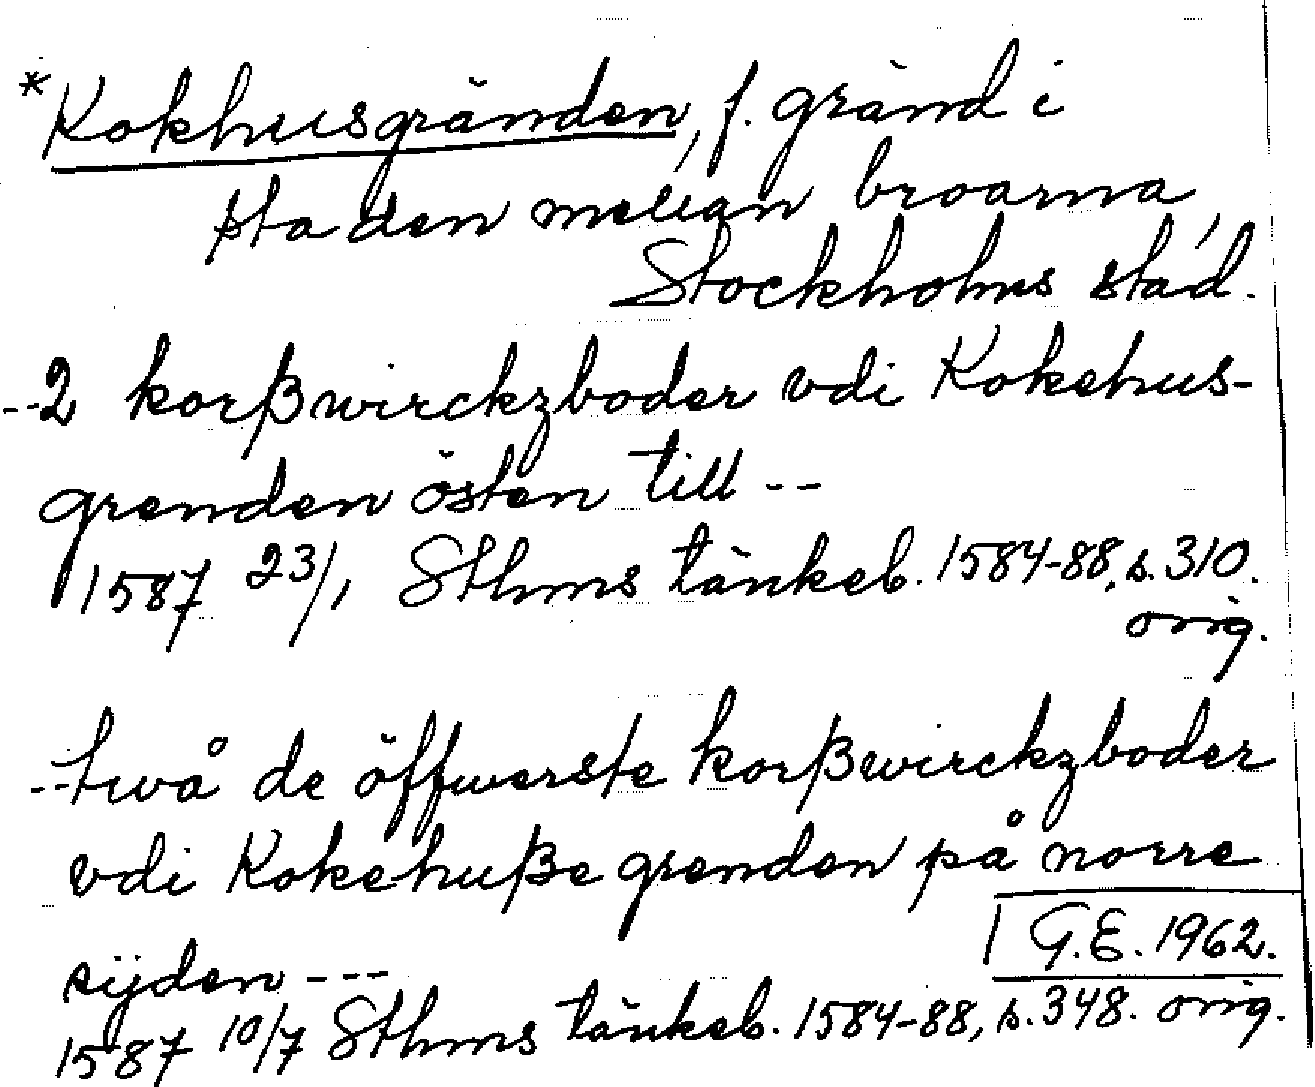 *Kokhusgränden, f. gränd i
staden mellan broarna,
Stockholms stad.
--2 korßwirckzboder vdi Kokehus-
grenden östen till --
1587 23/1 Sthms tänkeb. 1584-88, s. 310.
orig.
--twå de öffwerste korßwirckzboder
vdi Kokehuße grenden på norre
sijden ---
G.E. 1962.
1587 10/7 Sthms tänkeb. 1584-88, s. 348. orig.